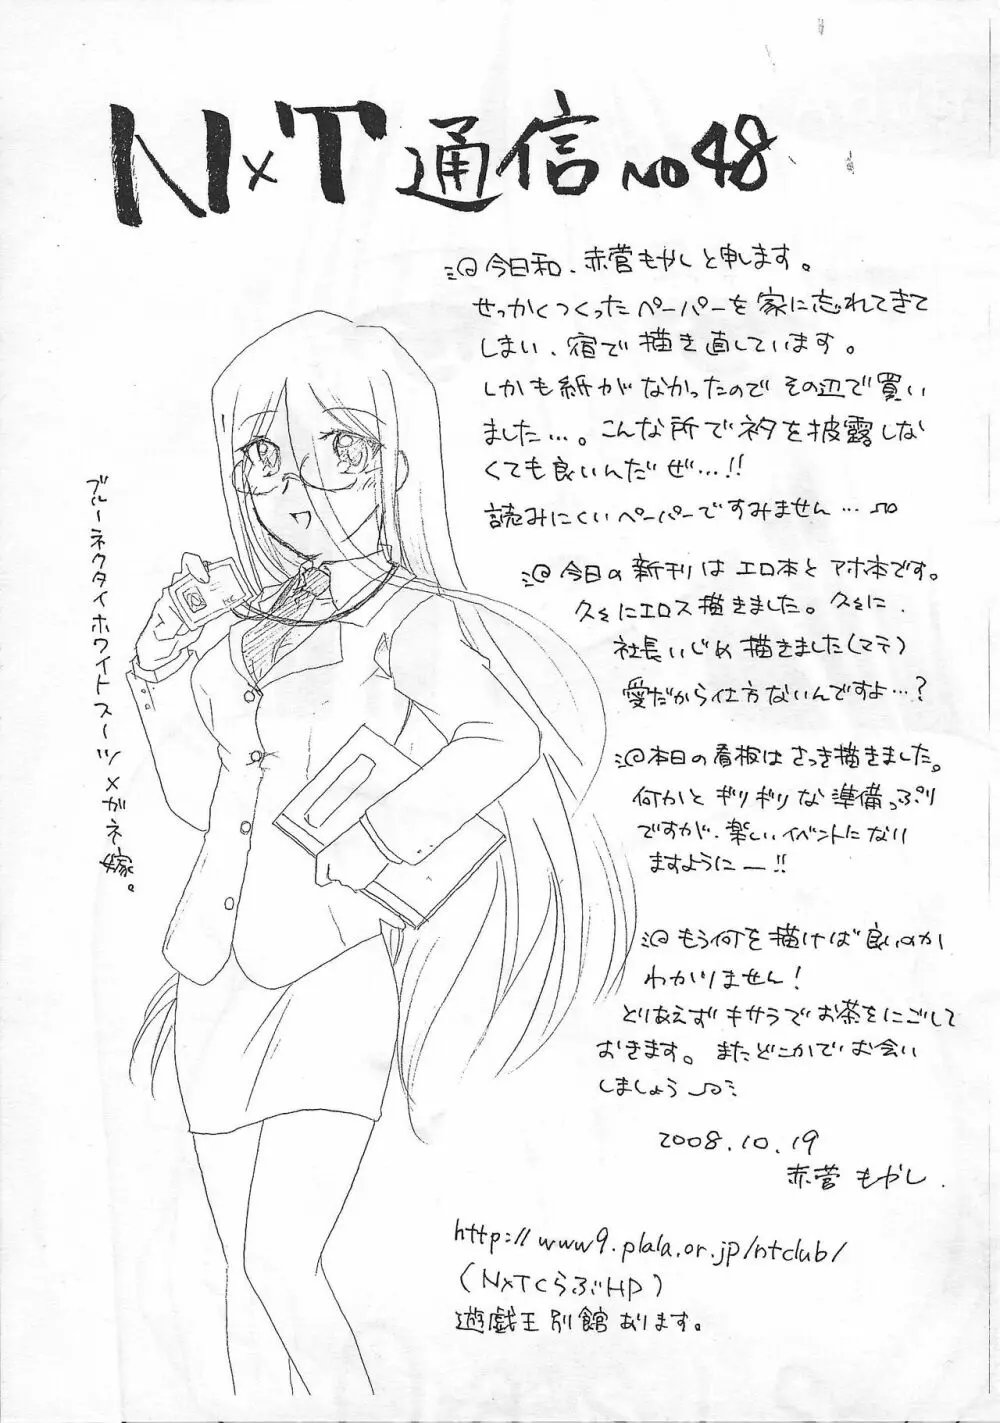 N×T通信 no48
今日和、赤菅もやしと申します。
せっかくつくったペーパーを家に忘れてきて
しまい、宿で描き直しています。
しかも紙がなかったのでその辺で買い
ました…。こんな所でネタを披露しな
くても良いんだぜ…!!
読みにくいペーパーですみません…
今日の新刊はエロ本とアホ本です。
久々にエロス描きました。久々に、
社長いじめ描きました(マテ)
愛だから仕方ないんですよ…?
本日の看板はさっき描きました。
何かとギリギリな準備っぷり
ですが、楽しいイベントになり
ますようにー!!
もう何を描けば良いのか
わかりません!
とりあえずキサラでお茶をにごして
おきます。またどこかでお会い
しましょう
2008.10.19
赤菅もやし.
http://www9.plala.or.jp/ntclub/
(N×TくらぶHP)
遊戯王別館あります。
ブルーネクタイホワイトスーツ×メガネ嫁。